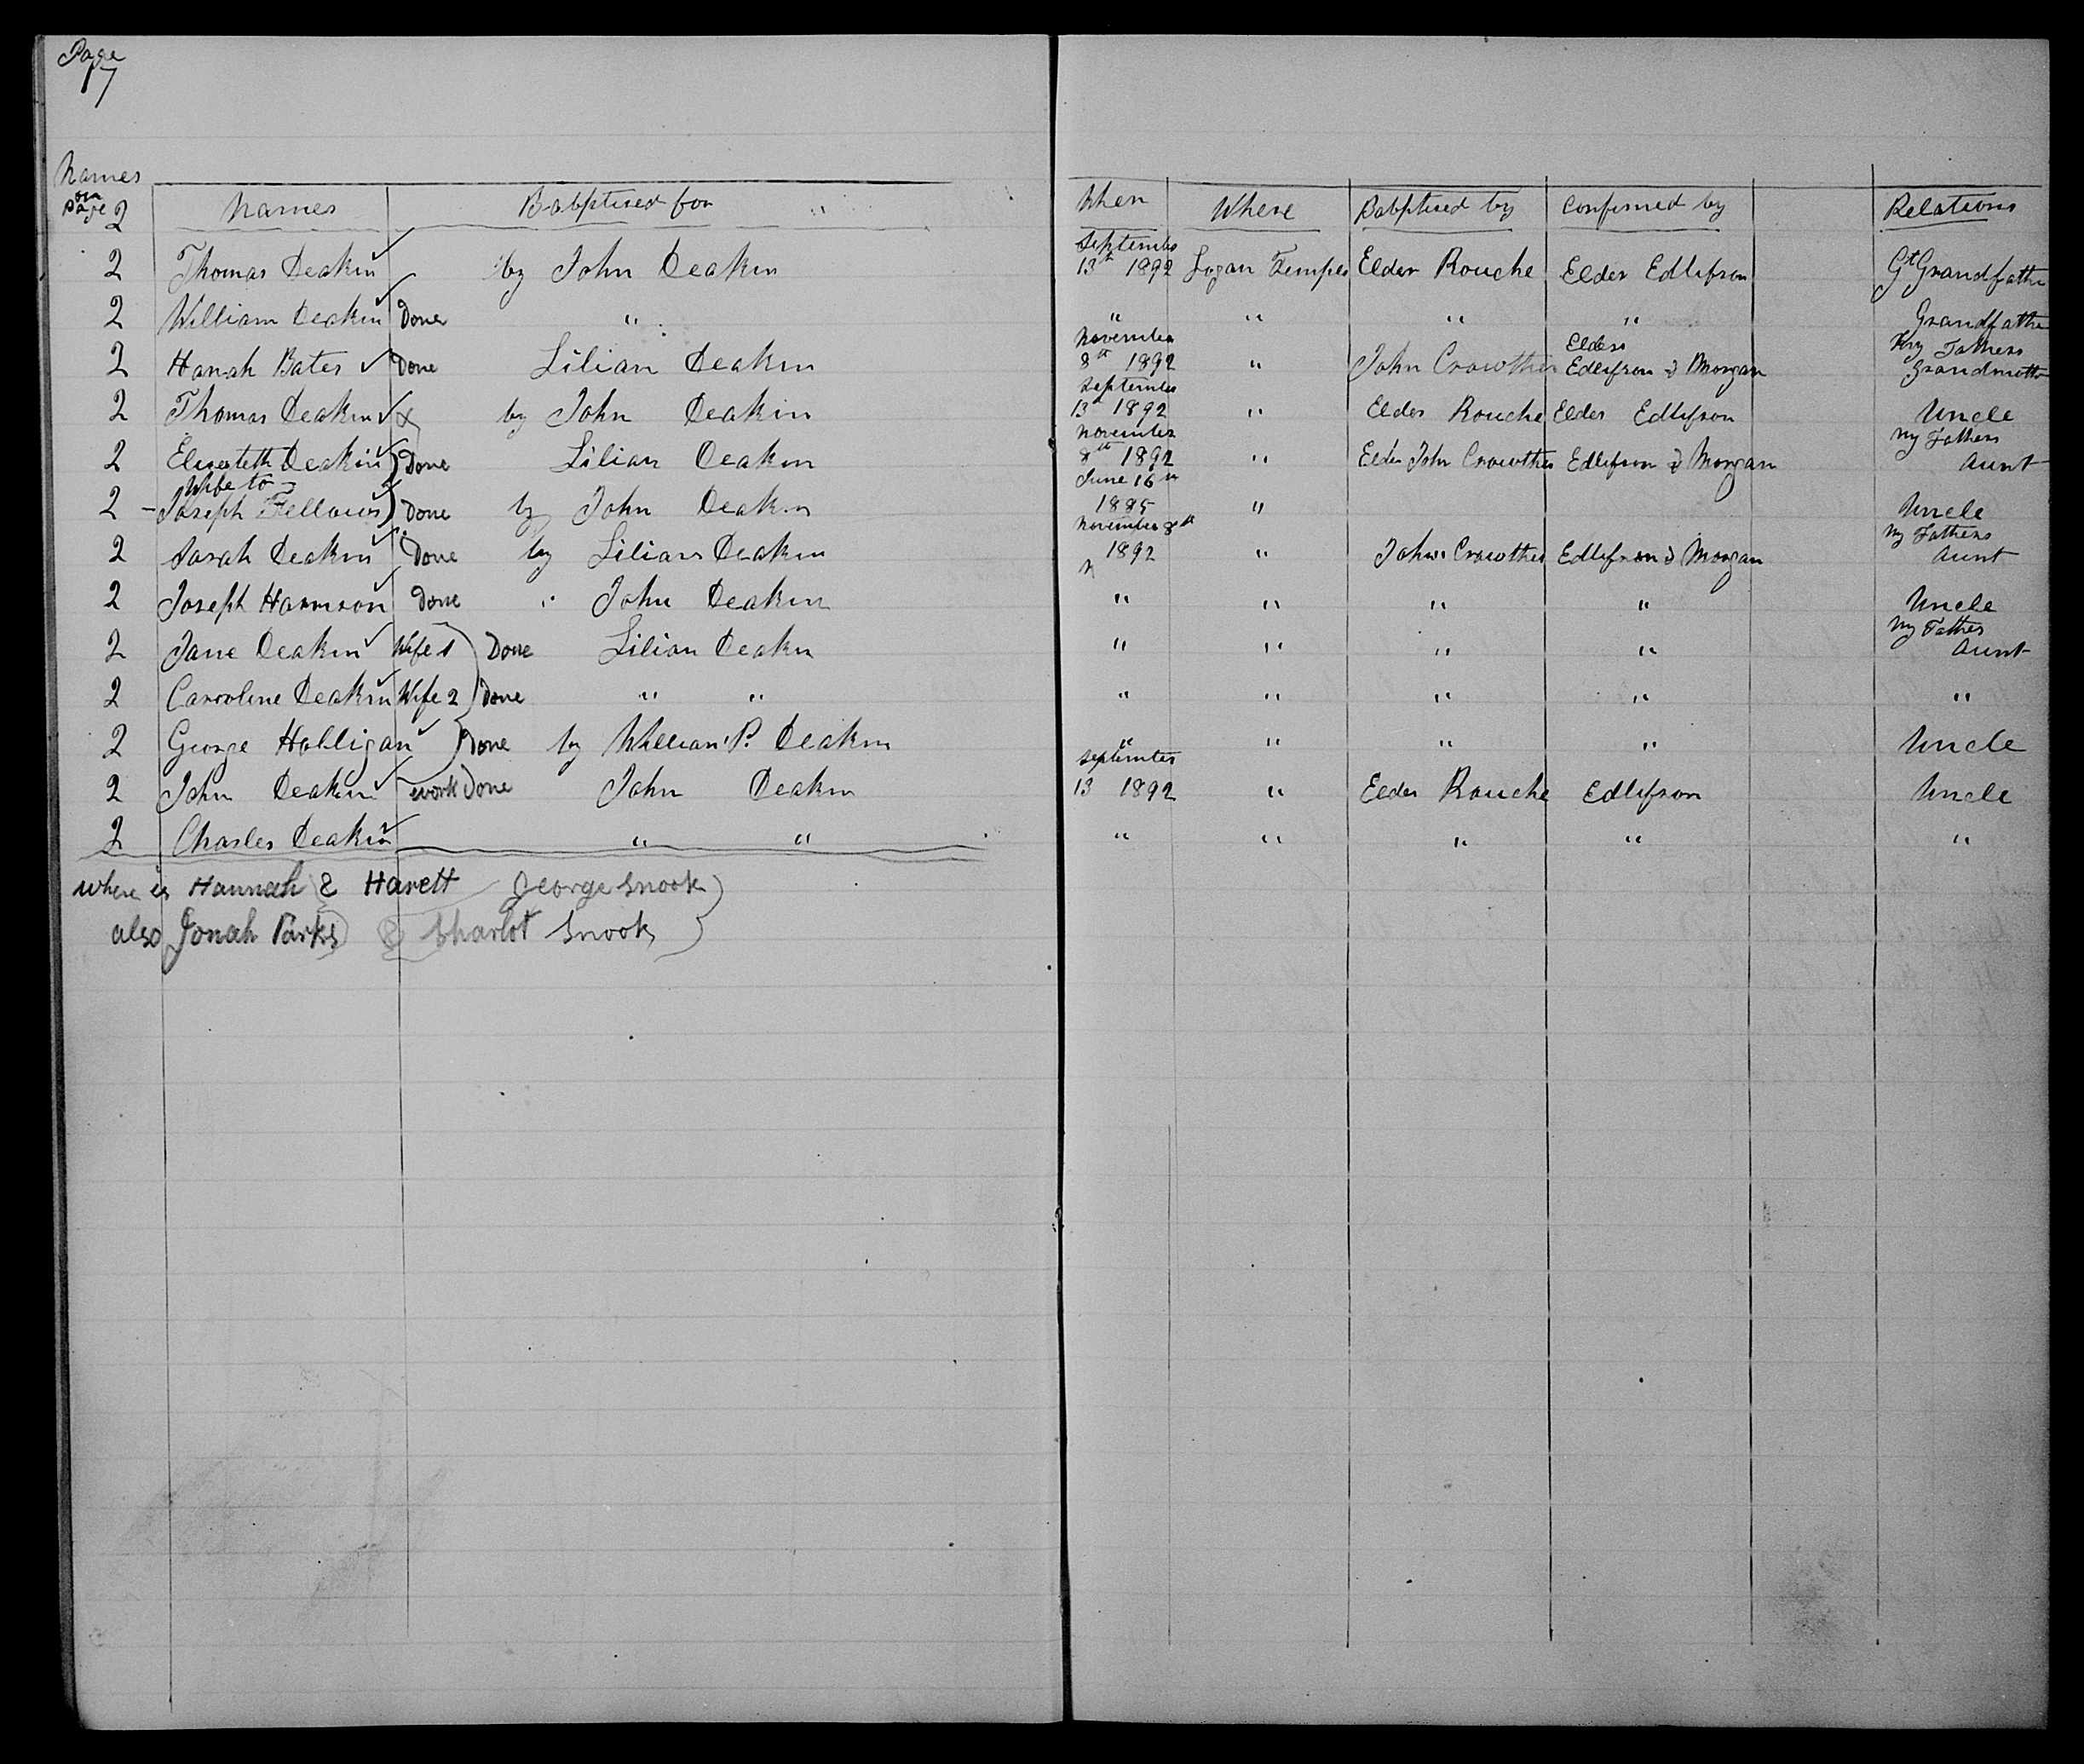 Page
17
Names
on
page 2 Names Babptised for " When Where Babptised by Confirmed by Relations
2 Thomas Deakin by John Deakin September 13th 1892 Logan Temple Elder Rouche Elder Edlifson Gt Grandfather
2 William Deakin Done " " " " " Grandfather
2 Hanah Bates Done Lilian Deakin November 8th 1892 " John Crowther Elders Edlifson & Morgan My Fathers Grandmother
2 Thomas Deakin X by John Deakin September 13th 1892 " Elder Rouche Elder Edlifson Uncle
2 Elizabeth Deakin Done Lilian Deakin November 8th 1892 " Elder John Crowther Edlifson & Morgan My Fathers Aunt
Wife to
2 - Joseph Fellows Done by John Deakin June 16th 1885 " Uncle
2 Sarah Deakin Done by Lilian Deakin November 8th 1892 " John Crowther Edlifson & Morgan My Fathers Aunt
2 Joseph Harrison Done " John Deakin " " " " Uncle
2 Jane Deakin Wife 1 Done Lilian Deakin " " " " My Father Aunt
2 Carroline Deakin Wife 2 Done " " " " " " "
2 George Holligan Done by William P. Deakin " " " " Uncle
2 John Deakin work Done John Deakin September 13 1892 " Elder Rouche Edlifson Uncle
2 Charles Deakin " " " " " " "
where is Hannah & Harett George Snook
also Jonah Parks & Sharlot Snook